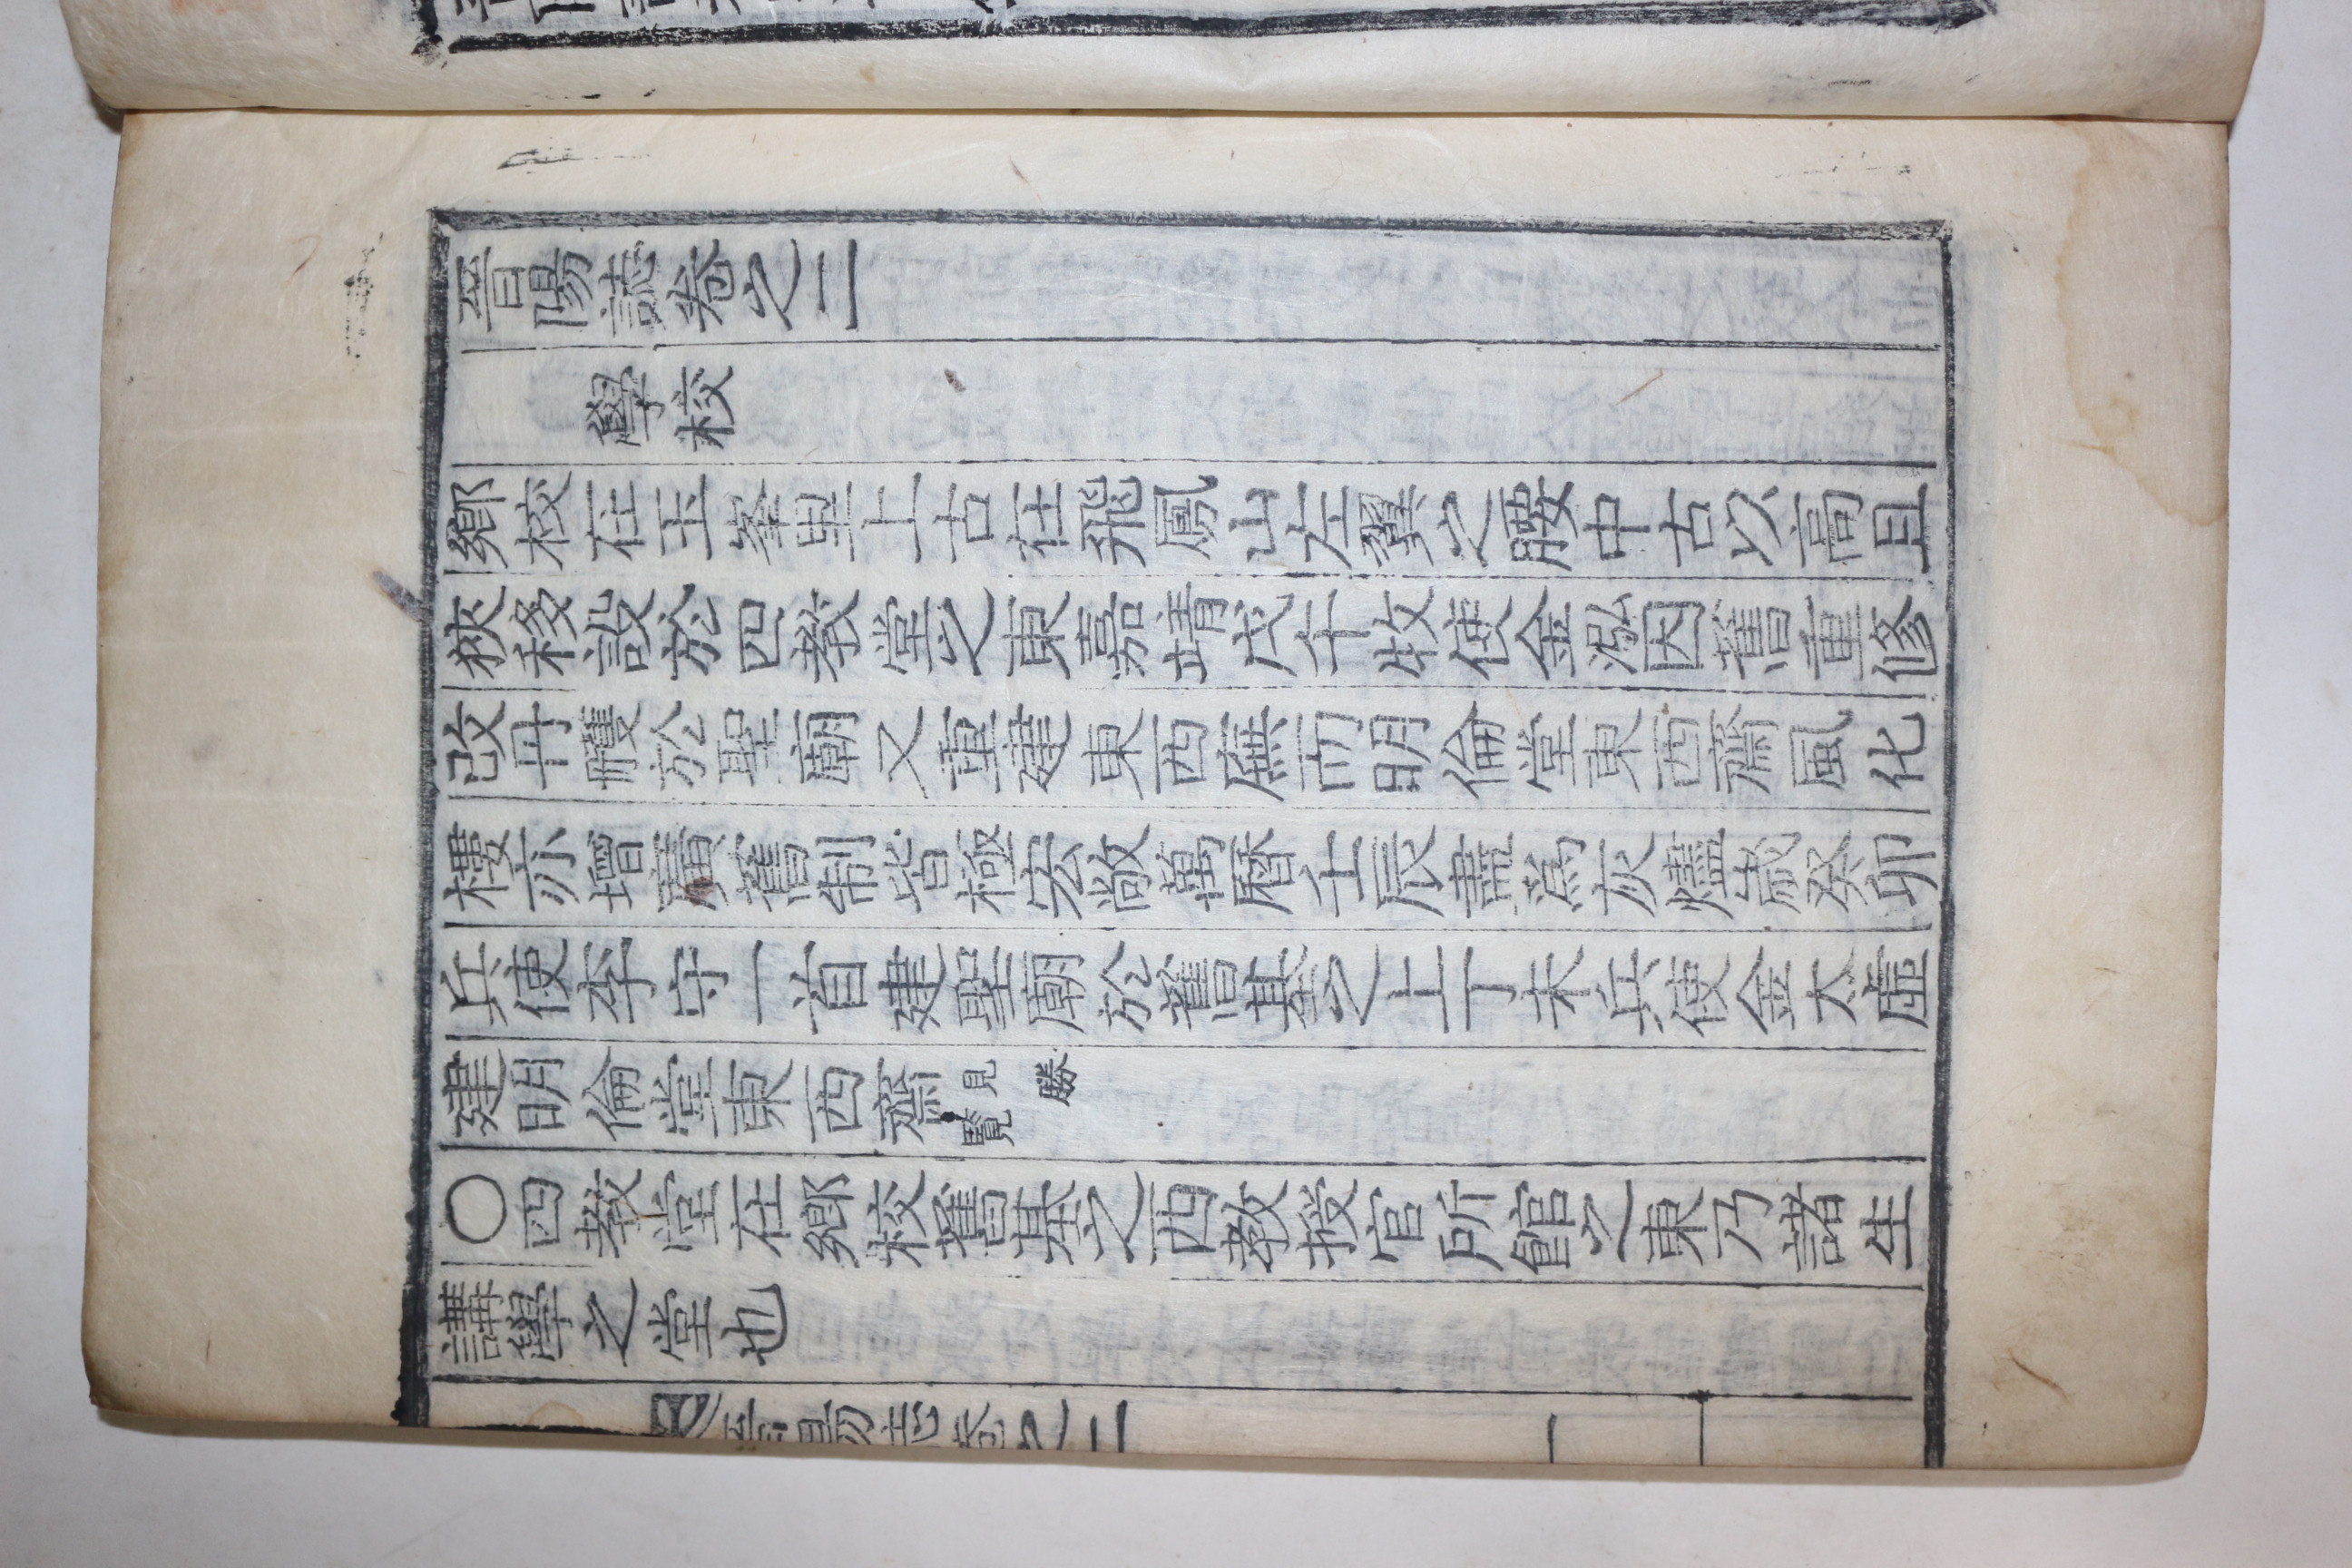 晉陽誌卷之二
學校
鄕校在玉峯里上古在飛鳳山左翼之腰中古以高且
狹移設於四教堂之東嘉靖戊午牧使金泓因舊重修
改丹雘於聖廟又重建東西廡而明倫堂東西齋風化
樓亦增廣舊制皆極宏敞萬曆壬辰盡爲灰燼歲癸卯
兵使李守一首建聖廟於舊基之上丁未兵使金太虛
建明倫堂東西齋見勝覽
〇四教堂在鄕校舊基之西教授官所館之東乃諸生
講學之堂也
晉陽誌卷之二 一